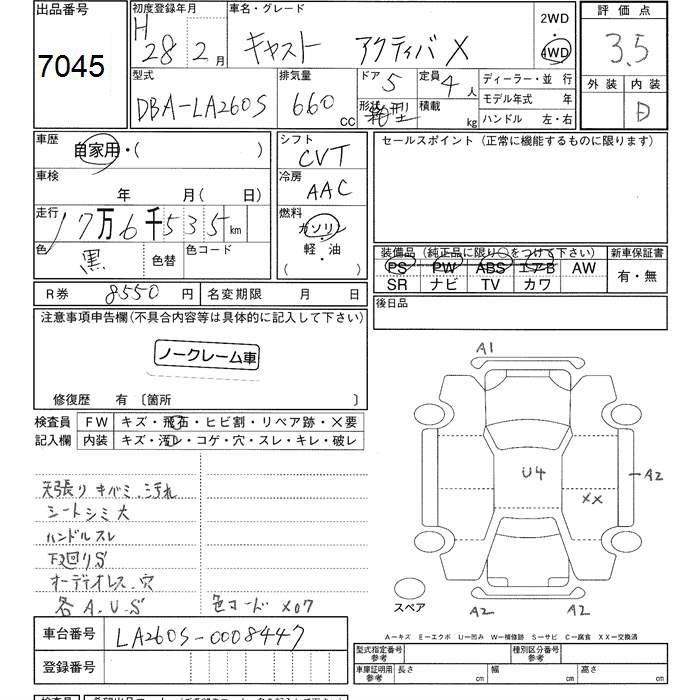 出品番号
7045
初度登録年月
H 28 2月
車名・グレード
キャスト アクティバ X
2WD
・
4WD
評価点
3.5
外装 内装
D
型式
DBA-LA260S
排気量
660 cc
ドア
5
定員
4人
形状
箱型
積載
kg
ディーラー・並行
モデル年式 年
ハンドル 左・右
車歴
自家用・( )
車検
年 月( 日)
走行
17万6千535 km
色
黒
色替
色コード
R券 8550円
名変期限 月 日
シフト
CVT
冷房
AAC
燃料
ガソリン
軽・油
( )
セールスポイント (正常に機能するものに限ります)
装備品 (純正品に限り○をつけて下さい)
PS PW ABS エアB AW
SR ナビ TV カワ
新車保証書
有・無
後日品
注意事項申告欄(不具合内容等は具体的に記入して下さい)
ノークレーム車
修復歴 有 〔箇所 〕
検査員
記入欄
FW キズ・飛石・ヒビ割・リペア跡・×要
内装 キズ・汚レ・コゲ・穴・スレ・キレ・破レ
天張りキバミ、汚れ
シートシミ大
ハンドルスレ
下廻りS
オーディオレス、穴
各A.U.S
色コード X07
A1
U4
A2
XX
A2
A2
スペア
A−キズ E−エクボ U−凹み W−補修跡 S−サビ C−腐食 XX−交換済
車台番号
LA260S-0008447
登録番号
型式指定番号
参考
種別区分番号
参考
車庫証明用
参考
長さ cm
幅 cm
高さ cm